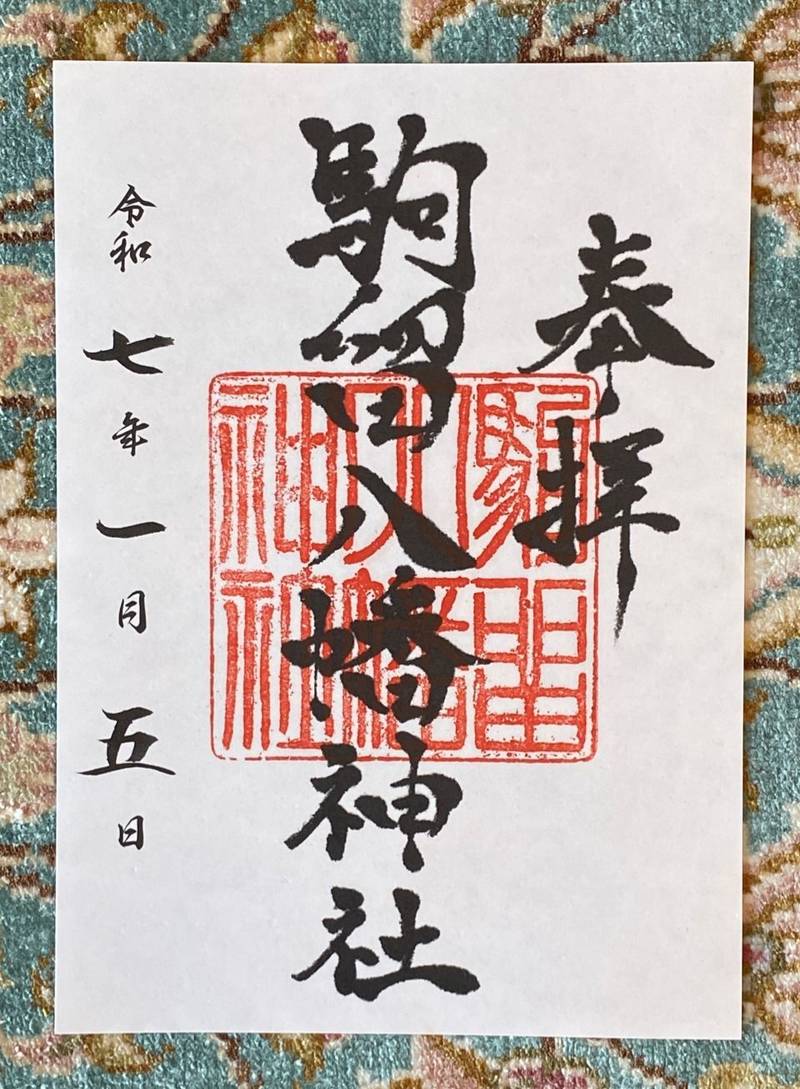 奉拝
駒留八幡神社
駒留
八幡
神社
令和七年一月五日